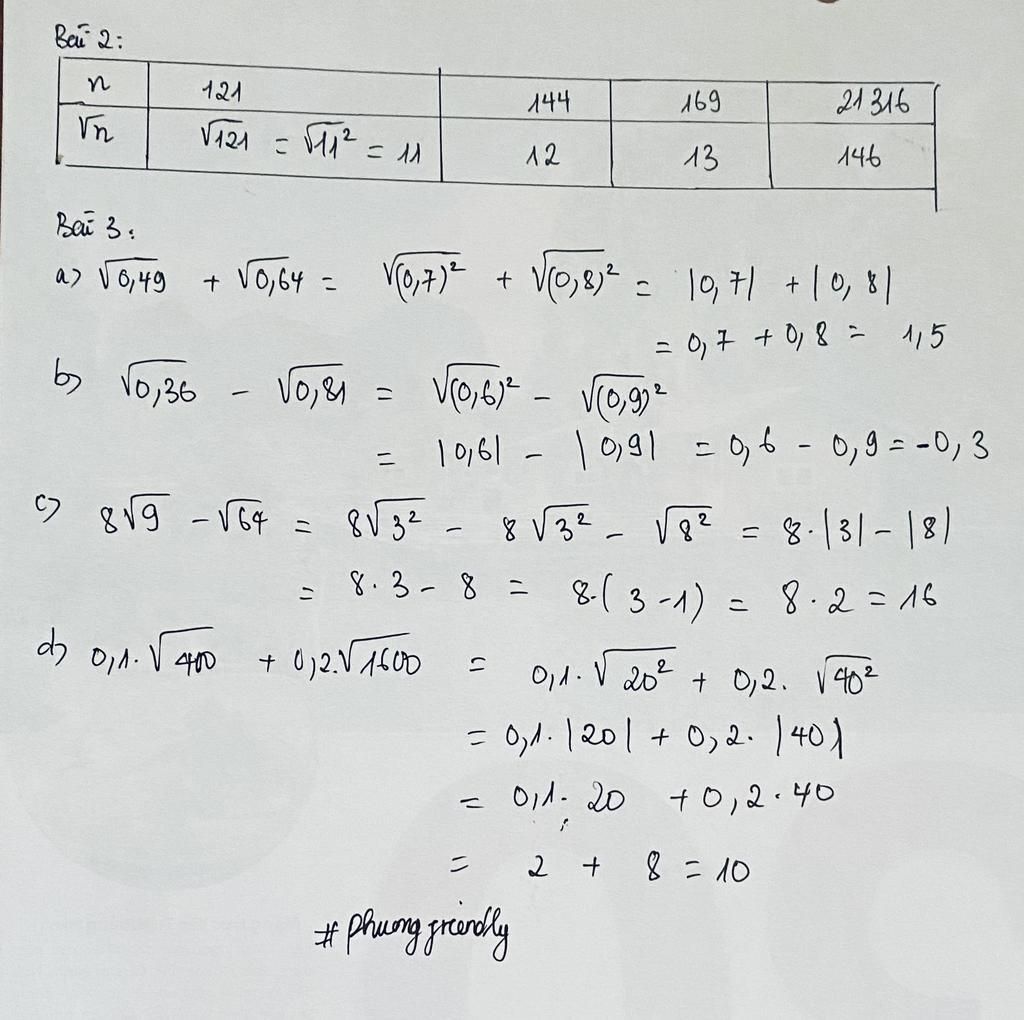 Bài 2:
n 121 144 169 21316
√n √121 = √11² = 11 12 13 146
Bài 3:
a) √0,49 + √0,64 = √(0,7)² + √(0,8)² = |0,7| + |0,8|
= 0,7 + 0,8 = 1,5
b) √0,36 - √0,81 = √(0,6)² - √(0,9)²
= |0,6| - |0,9| = 0,6 - 0,9 = -0,3
c) 8√9 - √64 = 8√3² - 8√3² - √8² = 8.|3| - |8|
= 8.3 - 8 = 8.(3-1) = 8.2 = 16
d) 0,1.√400 + 0,2.√1600 = 0,1.√20² + 0,2.√40²
= 0,1.|20| + 0,2.|40|
= 0,1.20 + 0,2.40
= 2 + 8 = 10